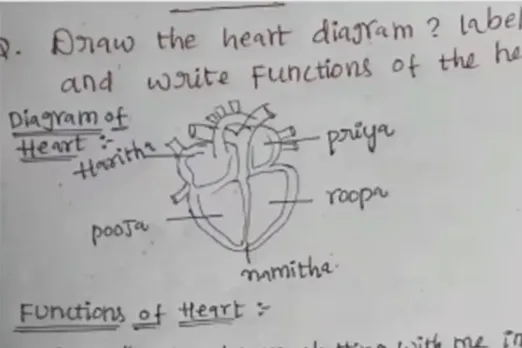 Q. Draw the heart diagram? label
and write Functions of the
Diagram of
Heart :-
Haritha
priya
pooja
roopa
namitha.
Functions of Heart :-
with me in